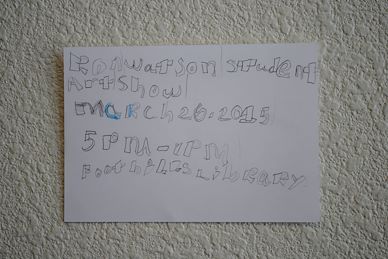 Ron Watson Student
Art Show
March 26. 2015
5 PM-7PM
Foothills Library